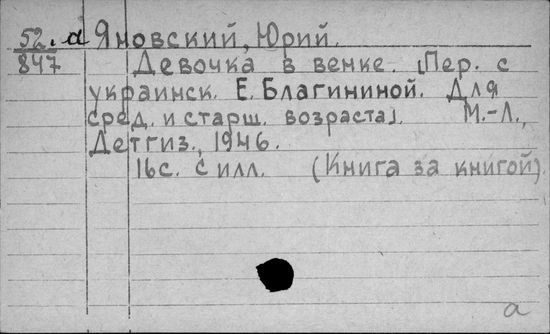 52.а Яновский, Юрий.
847 Девочка в венке. [Пер. с
украинск. Е. Благининой. Для
сред. и старш. возраста]. М.-Л.,
Детгиз., 1946.
16с. с илл. (Книга за книгой).
а